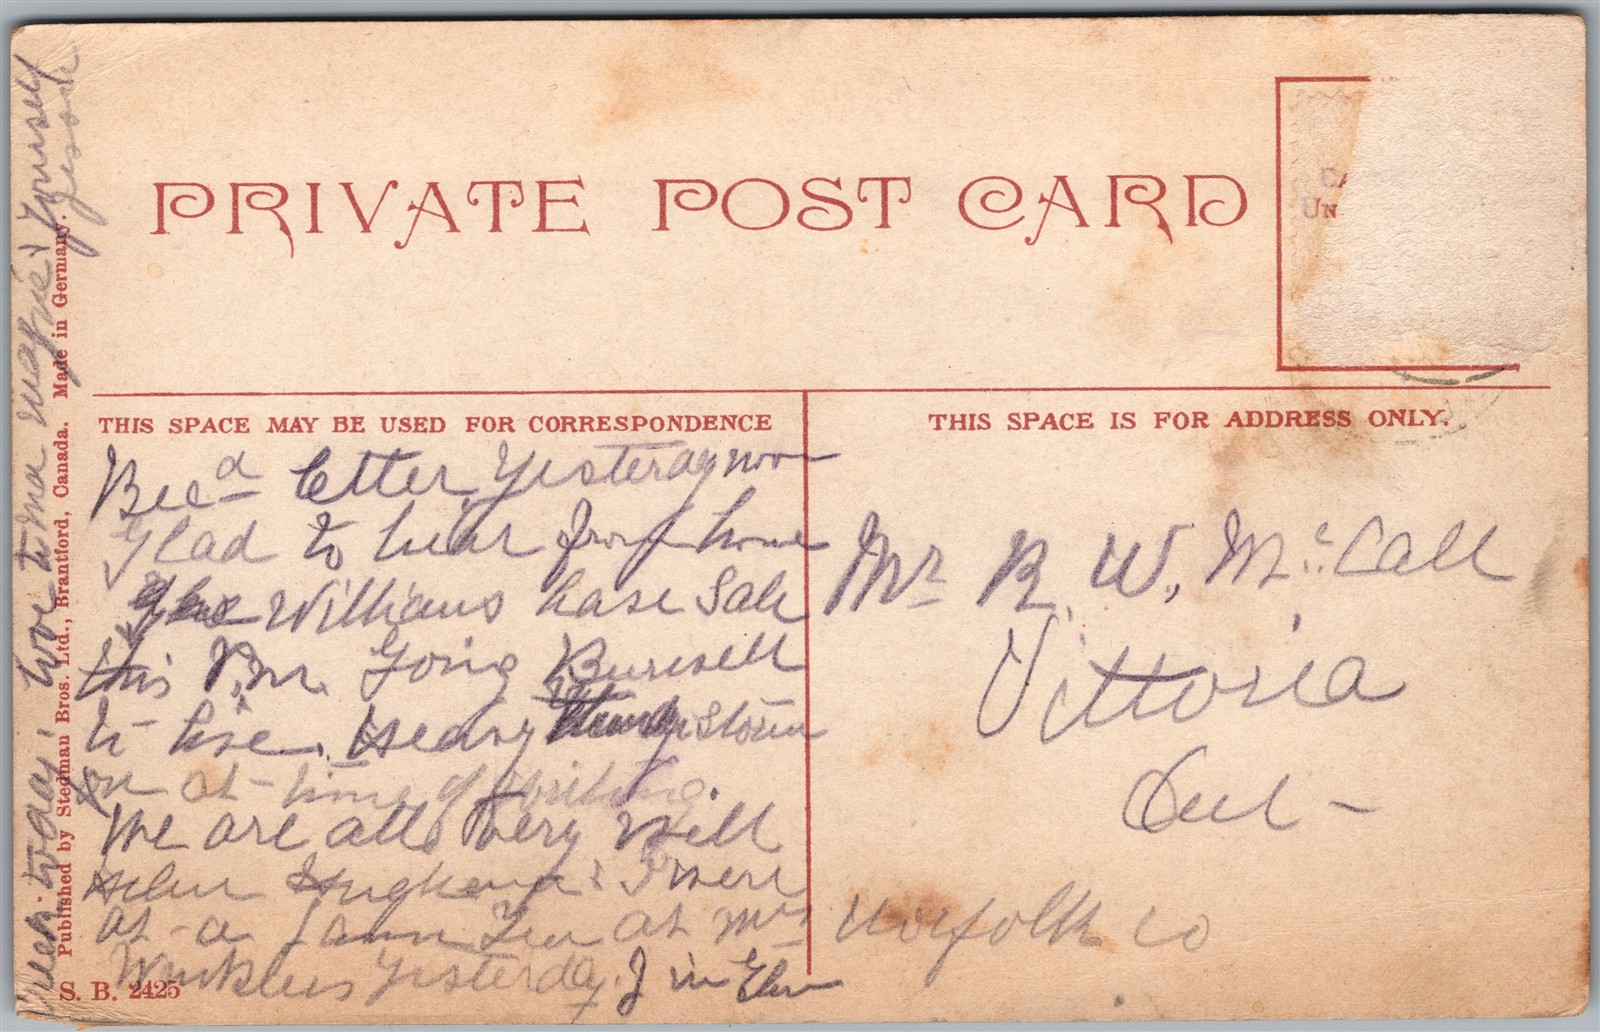 PRIVATE POST CARD
CA
UN
THIS SPACE MAY BE USED FOR CORRESPONDENCE
THIS SPACE IS FOR ADDRESS ONLY.
Rec'd letter Yesterday noon
Glad to hear from home
Williams have Sale
this P.M. Going Burwell
to live. Heavy storm
on at time of writing.
We are all very well
Helen & I were
at a Lawn Tea at Mrs
Winklers Yesterday.
Mr R. W. McCall
Vittoria
Ont
Norfolk Co
today. love to Ma Maggie & Yourself
Published by Stedman Bros. Ltd., Brantford, Canada. Made in Germany.
S. B. 2425